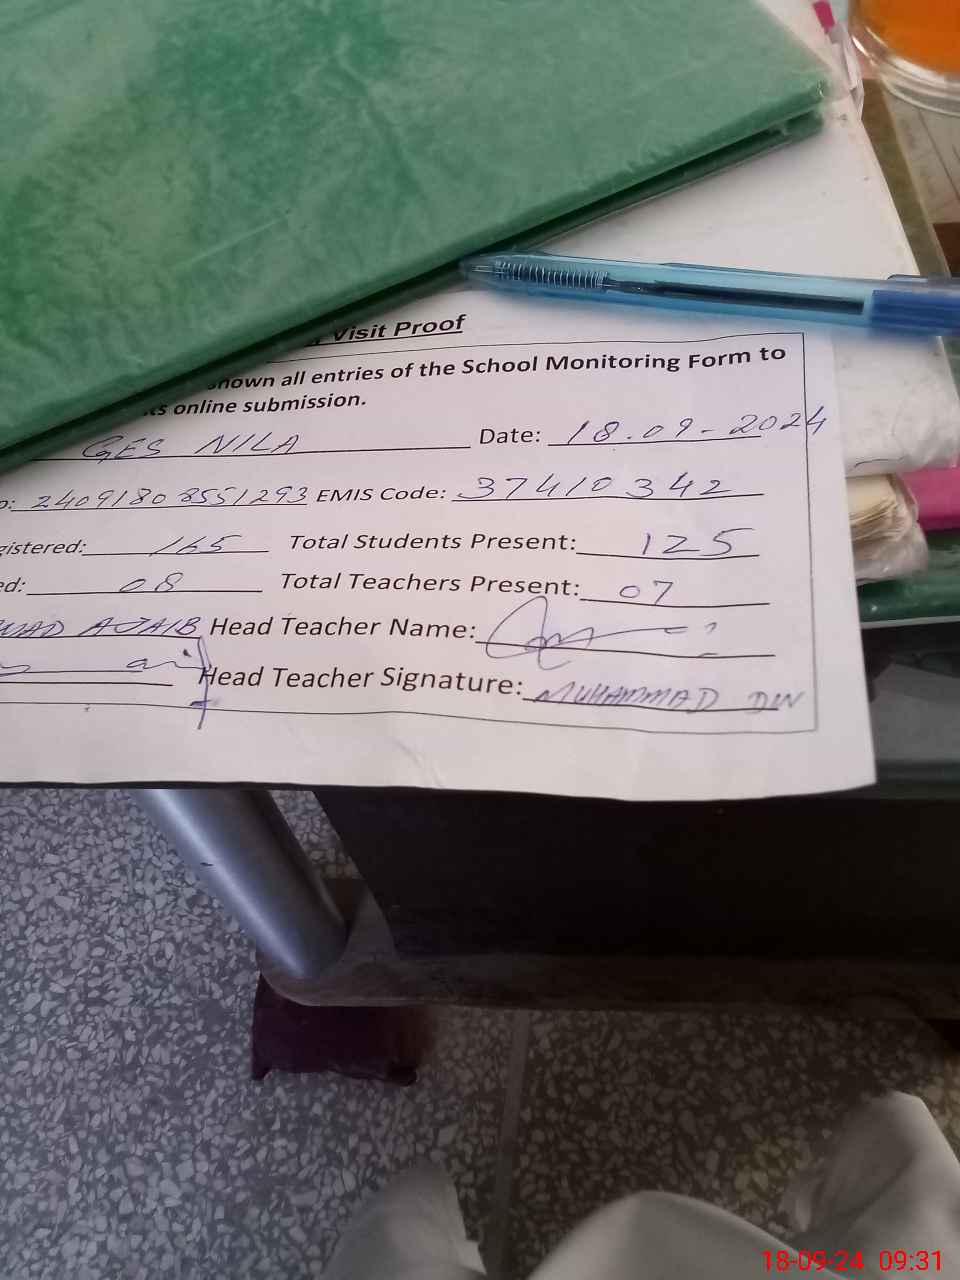 Visit Proof
shown all entries of the School Monitoring Form to
its online submission.
GES NILA Date: 18.09-2024
24091808551293 EMIS Code: 37410342
gistered: 165 Total Students Present: 125
ed: 08 Total Teachers Present: 07
AJAIB Head Teacher Name:
Head Teacher Signature: MUHAMMAD DIN
18-09-24 09:31